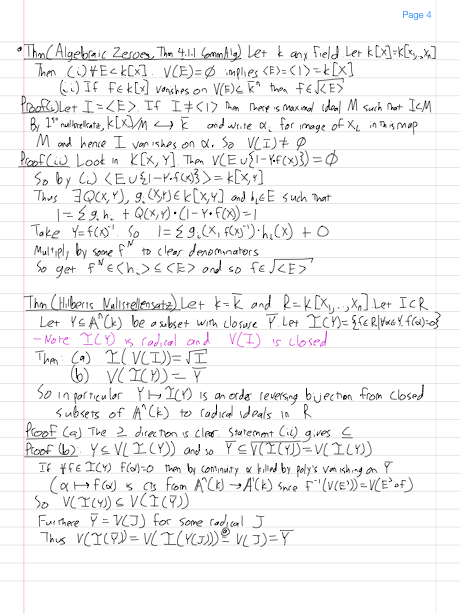 Page 4
• Thm (Algebraic Zeroes, Thm 4.1.1 CommAlg) Let k any field Let k[X]=k[x₁,..,xₙ]
Then (i) ∀E⊂k[X]. V(E)=∅ implies ⟨E⟩=⟨1⟩=k[X]
(ii) If f∈k[X] vanishes on V(E)⊆k̄ⁿ then f∈√⟨E⟩
Proof(i) Let I=⟨E⟩. If I≠⟨1⟩ then there is maximal ideal M such that I⊂M
By 1ˢᵗ nullstellensatz, k[X]/M ↪ k̄ and write αᵢ for image of xᵢ in this map
M and hence I vanishes on α. So V(I)≠∅
Proof(ii) Look in k[X,Y]. Then V(E∪{1-Y·f(X)})=∅
So by (i) ⟨E∪{1-Y·f(X)}⟩=k[X,Y]
Thus ∃Q(X,Y), gᵢ(X,Y)∈k[X,Y] and hᵢ∈E such that
1=Σgᵢhᵢ + Q(X,Y)·(1-Y·f(X))=1
Take Y=f(X)⁻¹. So 1=Σgᵢ(X,f(X)⁻¹)·hᵢ(X) + 0
Multiply by some fᴺ to clear denominators
So get fᴺ∈⟨hᵢ⟩⊆⟨E⟩ and so f∈√⟨E⟩
Thm (Hilberts Nullstellensatz) Let k=k̄ and R=k[x₁,..,xₙ] Let I⊂R
Let Y⊆𝔸ⁿ(k) be a subset with closure Ȳ. Let I(Y)={f∈R|∀α∈Y. f(α)=0}
- Note I(Y) is radical and V(I) is closed
Then: (a) I(V(I))=√I
(b) V(I(Y))=Ȳ
So in particular Y↦I(Y) is an order reversing bijection from closed
subsets of 𝔸ⁿ(k) to radical ideals in R
Proof (a) The ⊇ direction is clear. Statement (ii) gives ⊆
Proof (b): Y⊆V(I(Y)) and so Ȳ⊆V(I(Y))=V(I(Y))
If ∀f∈I(Y) f(α)=0 then by continuity α killed by poly's vanishing on Ȳ
(α↦f(α) is cts from 𝔸ⁿ(k)→𝔸¹(k) since f⁻¹(V(E'))=V(E'∘f)
So V(I(Y))⊆V(I(Ȳ))
Furthere Ȳ=V(J) for some radical J
Thus V(I(Ȳ))=V(I(V(J)))=V(J)=Ȳ